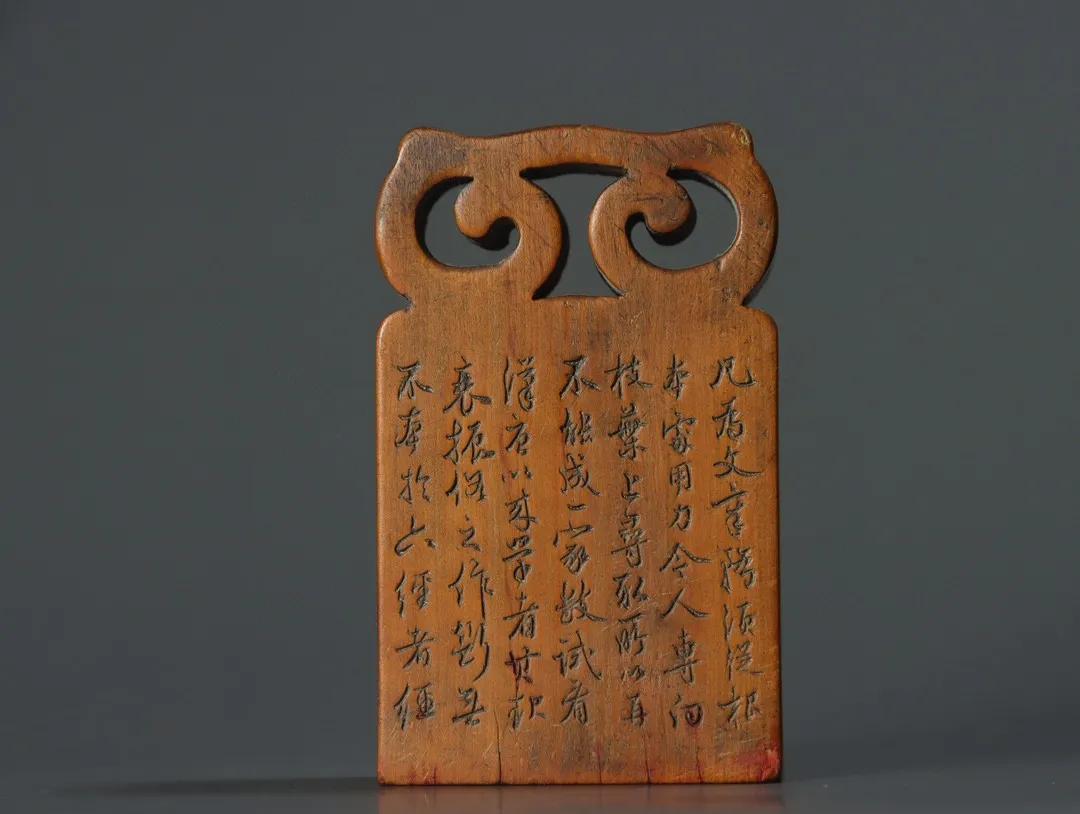 凡爲文章務須從根
本處用力今人專向
枝葉上尋取所以再
不能成一家數試看
漢唐以來學者其起
衰振俗之作斷無
不本於六經者經